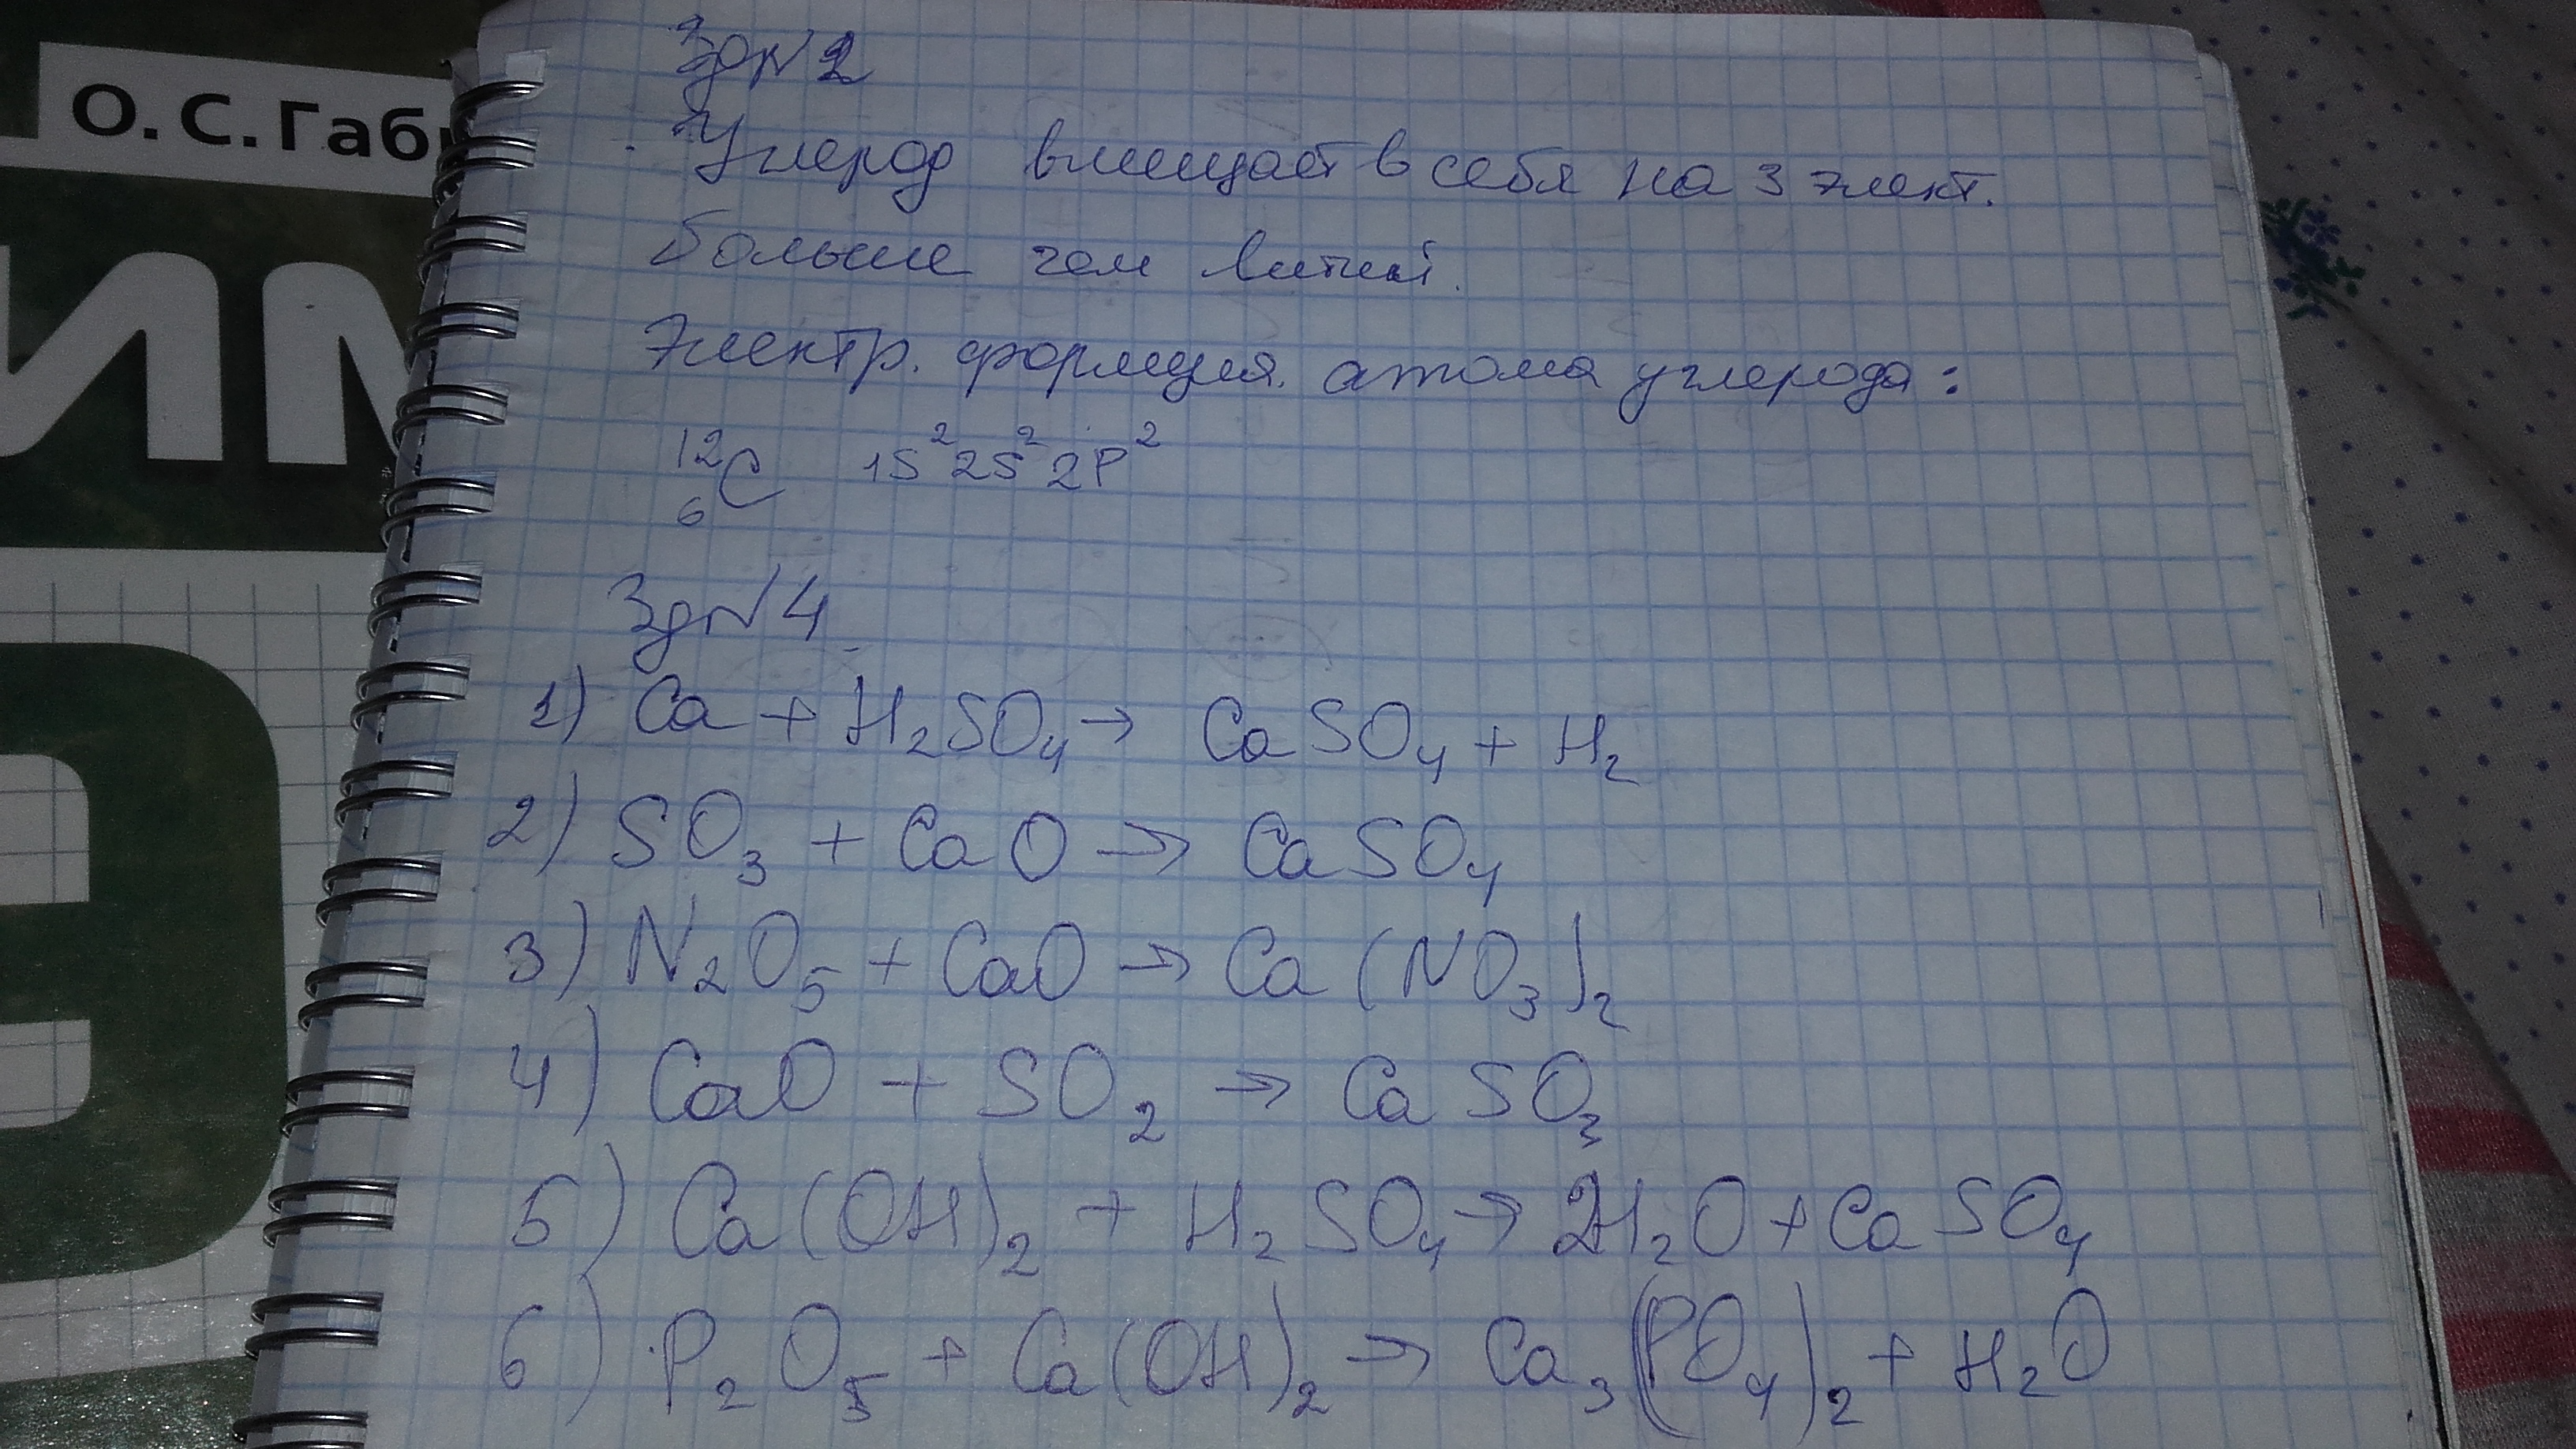 О. С. Габ
ИМ
Зд№2
Углерод вмещает в себя на 3 элект.
больше чем литий.
Электр. формула атома углерода:
¹²₆C 1S²2S²2P²
Зд№4
1) Ca + H₂SO₄ → CaSO₄ + H₂
2) SO₃ + CaO → CaSO₄
3) N₂O₅ + CaO → Ca(NO₃)₂
4) CaO + SO₂ → CaSO₃
5) Ca(OH)₂ + H₂SO₄ → 2H₂O + CaSO₄
6) P₂O₅ + Ca(OH)₂ → Ca₃(PO₄)₂ + H₂O